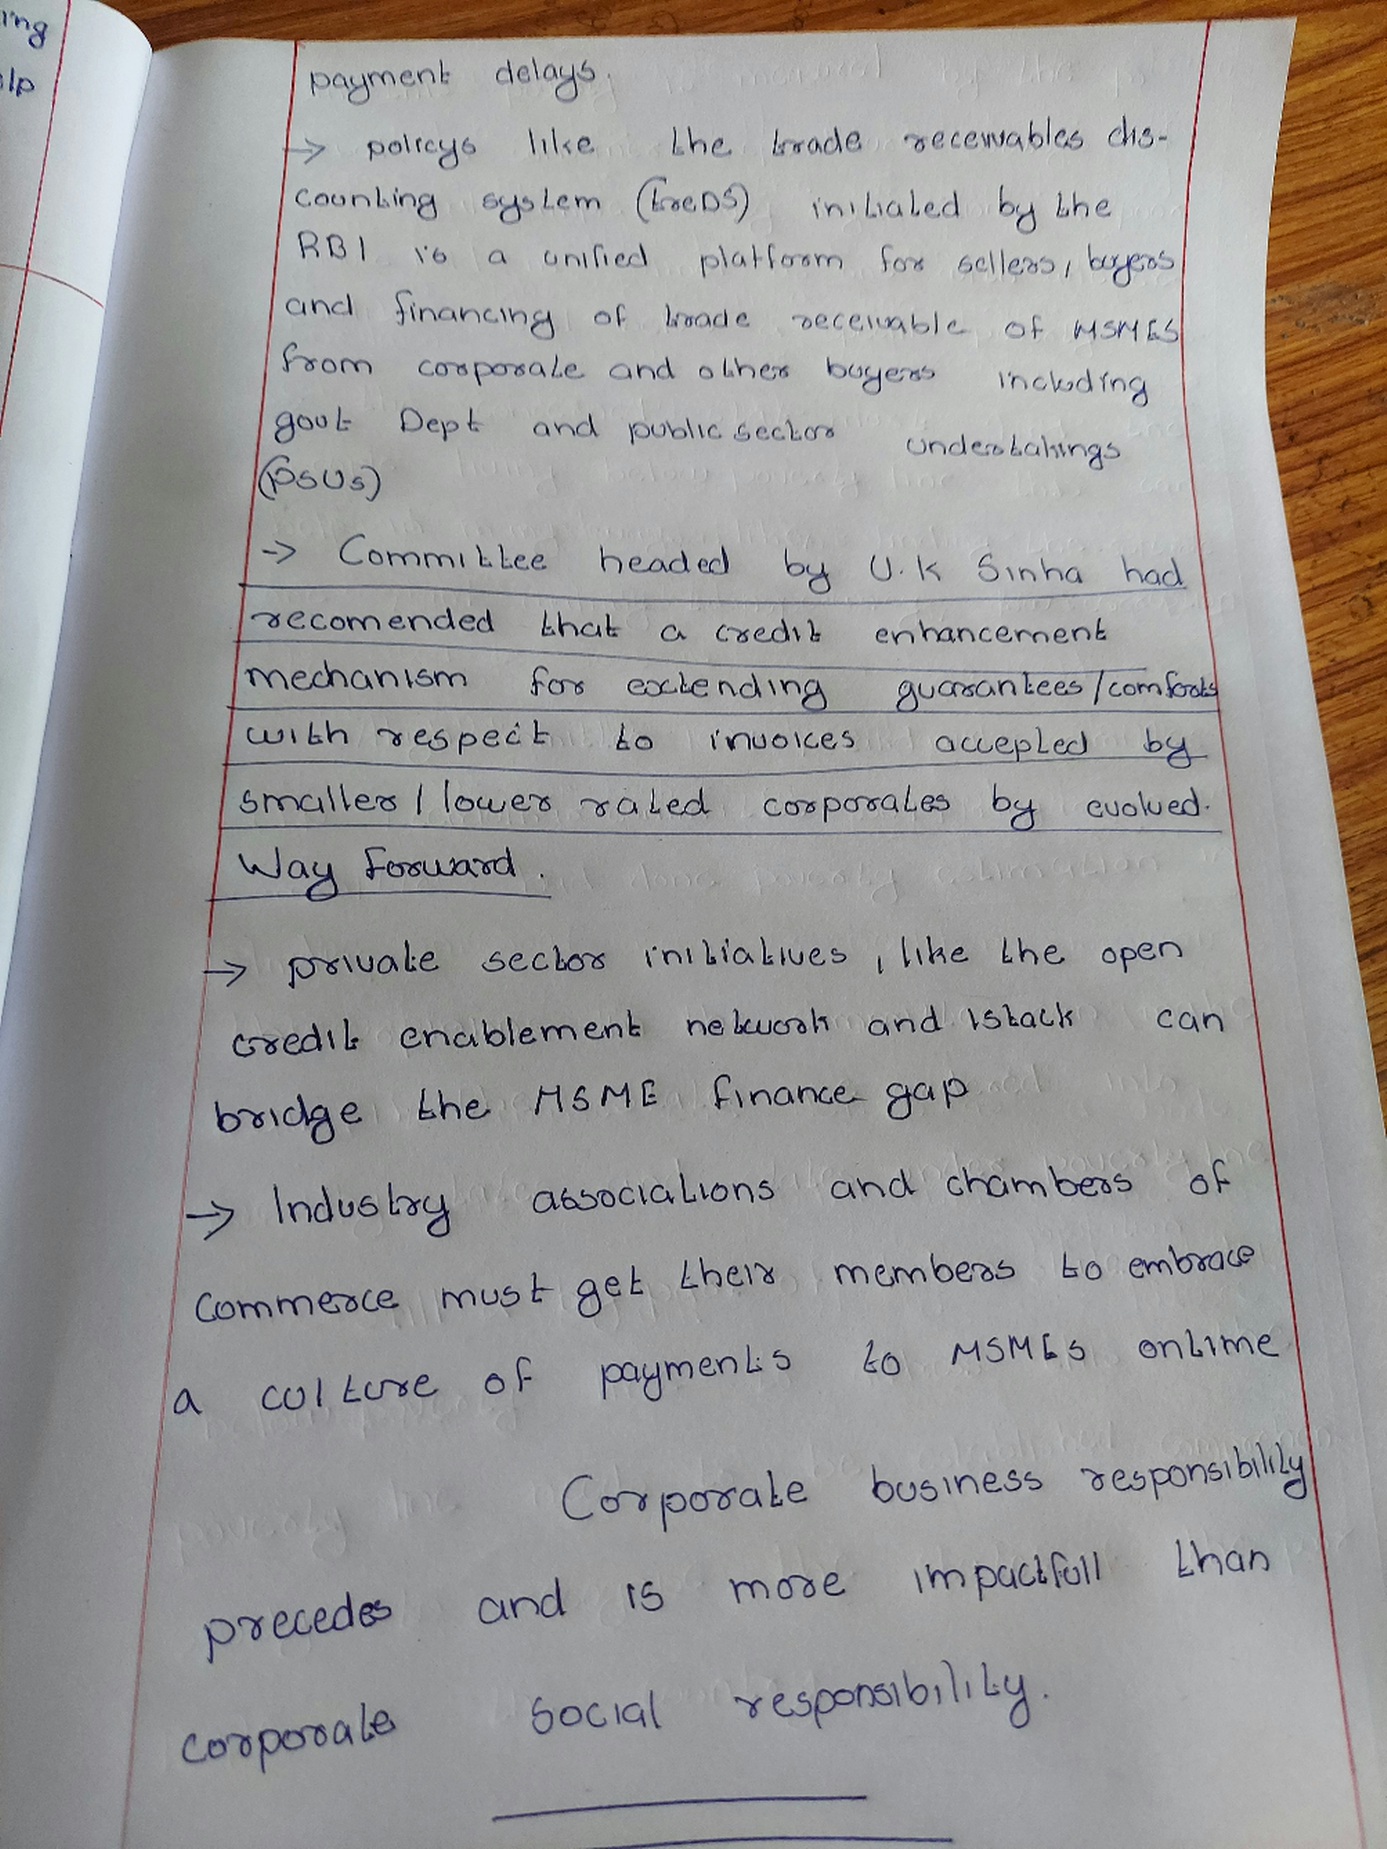 ing
olp
payment delays.
→ policys like the trade receivables dis-
counting system (treDS) initiated by the
RBI is a unified platform for sellers, buyers
and financing of trade receivable of MSMES
from corporate and other buyers including
govt Dept and public sector undertakings
(PSUs)
→ Committee headed by U.K Sinha had
recomended that a credit enhancement
mechanism for extending guarantees/comforts
with respect to invoices accepted by
smaller / lower rated corporates by evolved.
Way Forward.
→ private sector initiatives, like the open
credit enablement network and istack can
bridge the MSME finance gap
→ Industry associations and chambers of
commerce must get their members to embrace
a culture of payments to MSMEs ontime
Corporate business responsibility
precedes and is more impactfull than
corporate social responsibility.